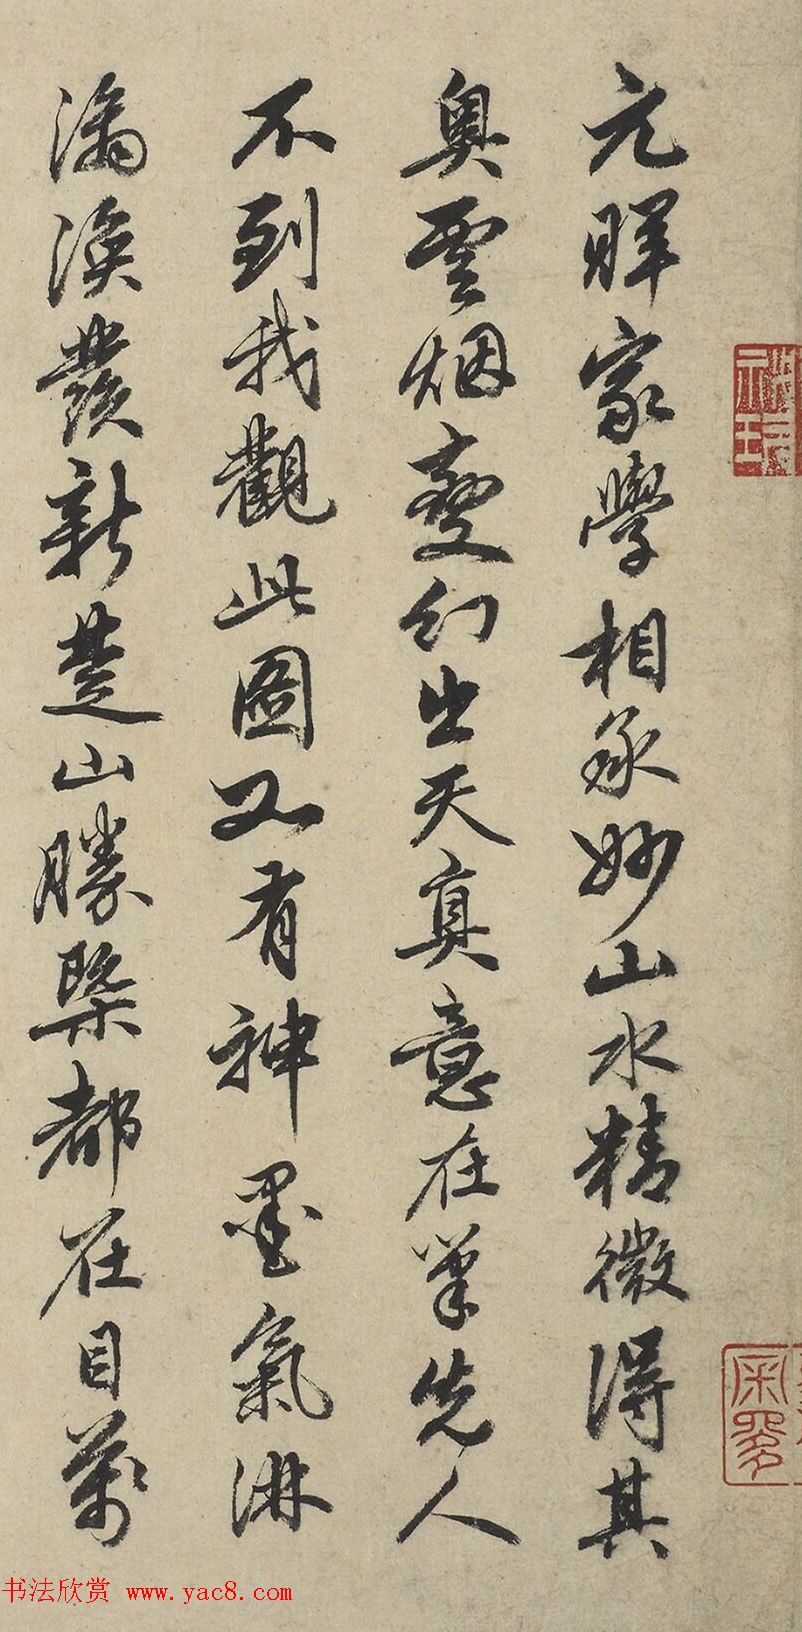 元暉家學相承妙山水精微得其
奥雲烟變幻出天真意在筆先人
不到我觀此圖又有神墨氣淋
漓渙發新楚山勝槩都在目萬
书法欣赏 www.yac8.com